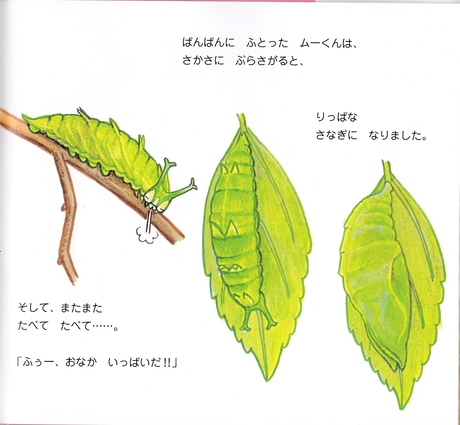 そして、またまた
たべて　たべて……。
「ふぅー、おなか　いっぱいだ!!」
ぱんぱんに　ふとった　ムーくんは、
さかさに　ぶらさがると、
りっぱな
さなぎに　なりました。